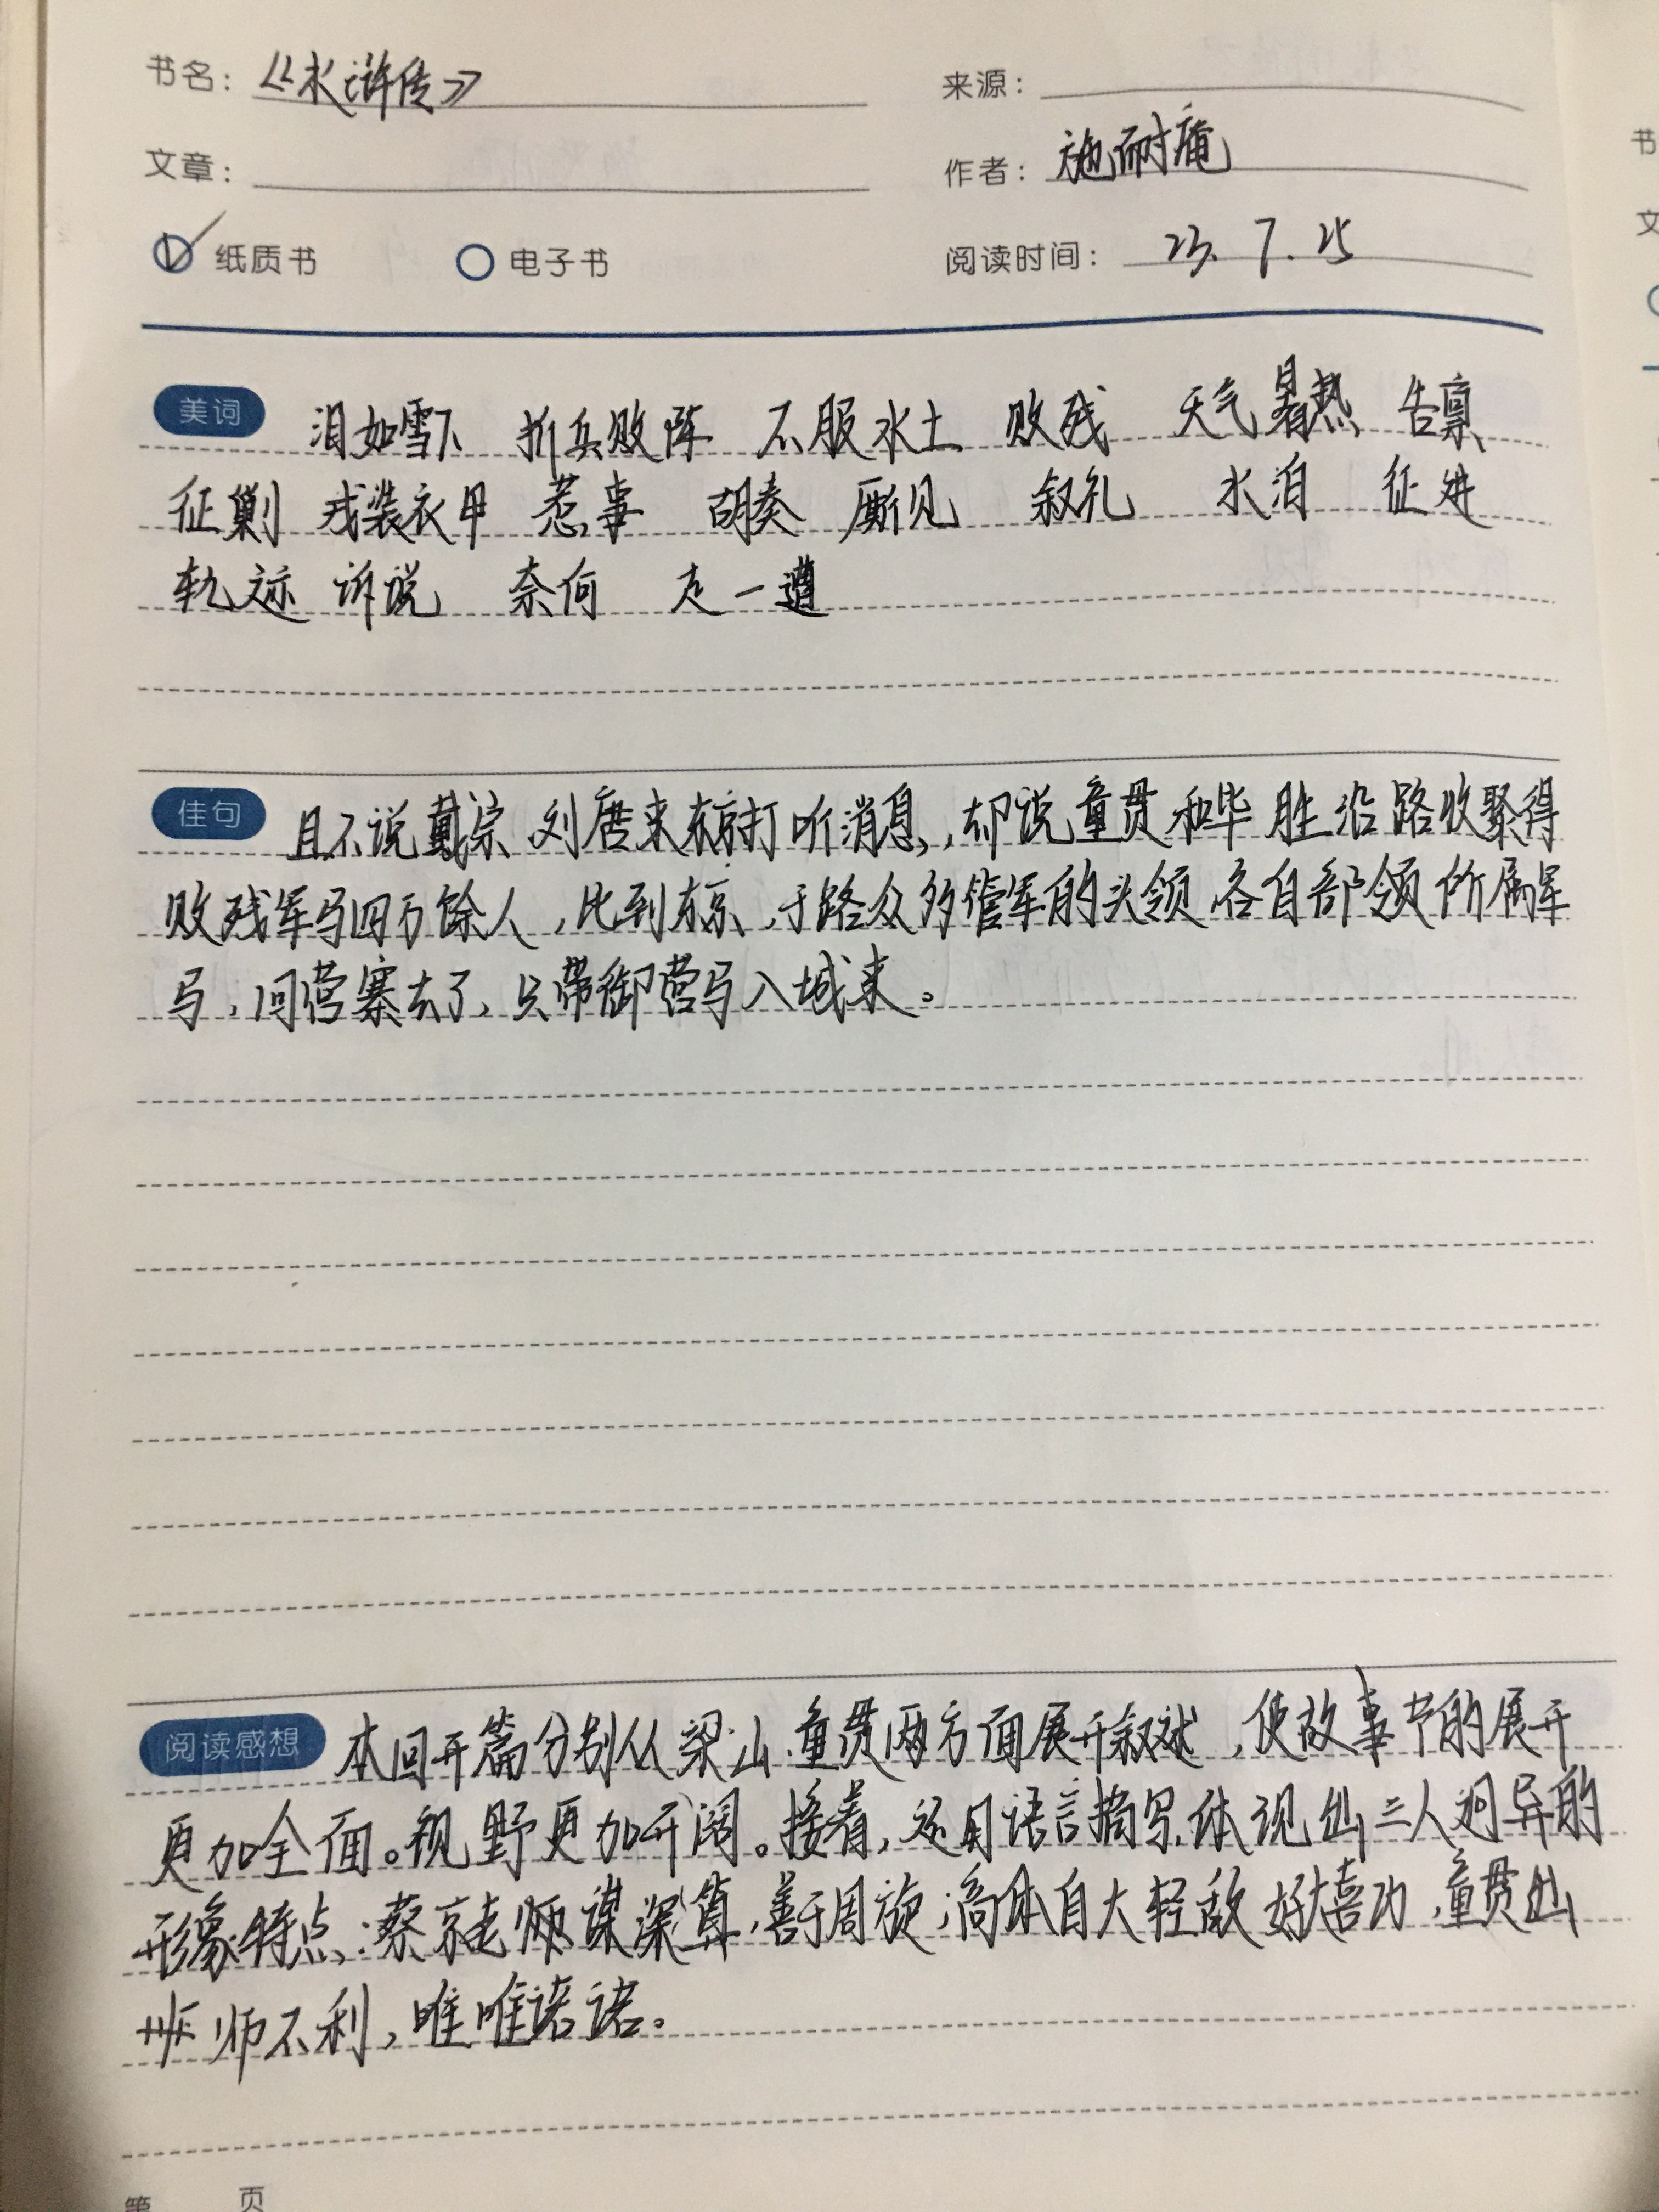 书名: 《水浒传》 来源:
文章: 作者: 施耐庵
纸质书 电子书 阅读时间: 23.7.25
美词 泪如雪下 折兵败阵 不服水土 败残 天气暑热 告禀
征剿 戎装衣甲 惹事 胡奏 厮见 叙礼 水泊 征进
轨迹 诉说 奈何 走一遭
佳句 且不说戴宗、刘唐来东京打听消息,却说童贯和毕胜沿路收聚得
败残军马四万余人,比到东京,于路众多管军的头领各自部领所属军
马,回营寨去了,只带御营马入城来。
阅读感想 本回开篇分别从梁山、童贯两方面展开叙述,使故事节的展开
更加全面。视野更加开阔。接着,运用语言描写,体现出三人迥异的
形象特点:蔡京老师谋深算,善于周旋;高俅自大轻敌好大喜功,童贯出
师不利,唯唯诺诺。
第 页
书
文